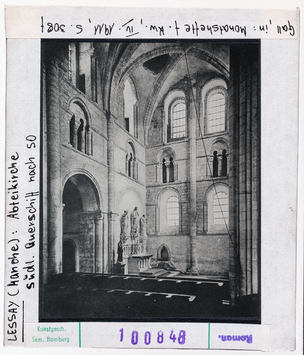 Gall, in: Monatshefte f. Kw., IV, 1911, S. 308f
LESSAY (Manche): Abteikirche
südl. Querschiff nach SO
Kunstgesch.
Sem. Hamburg
100848
Roman.